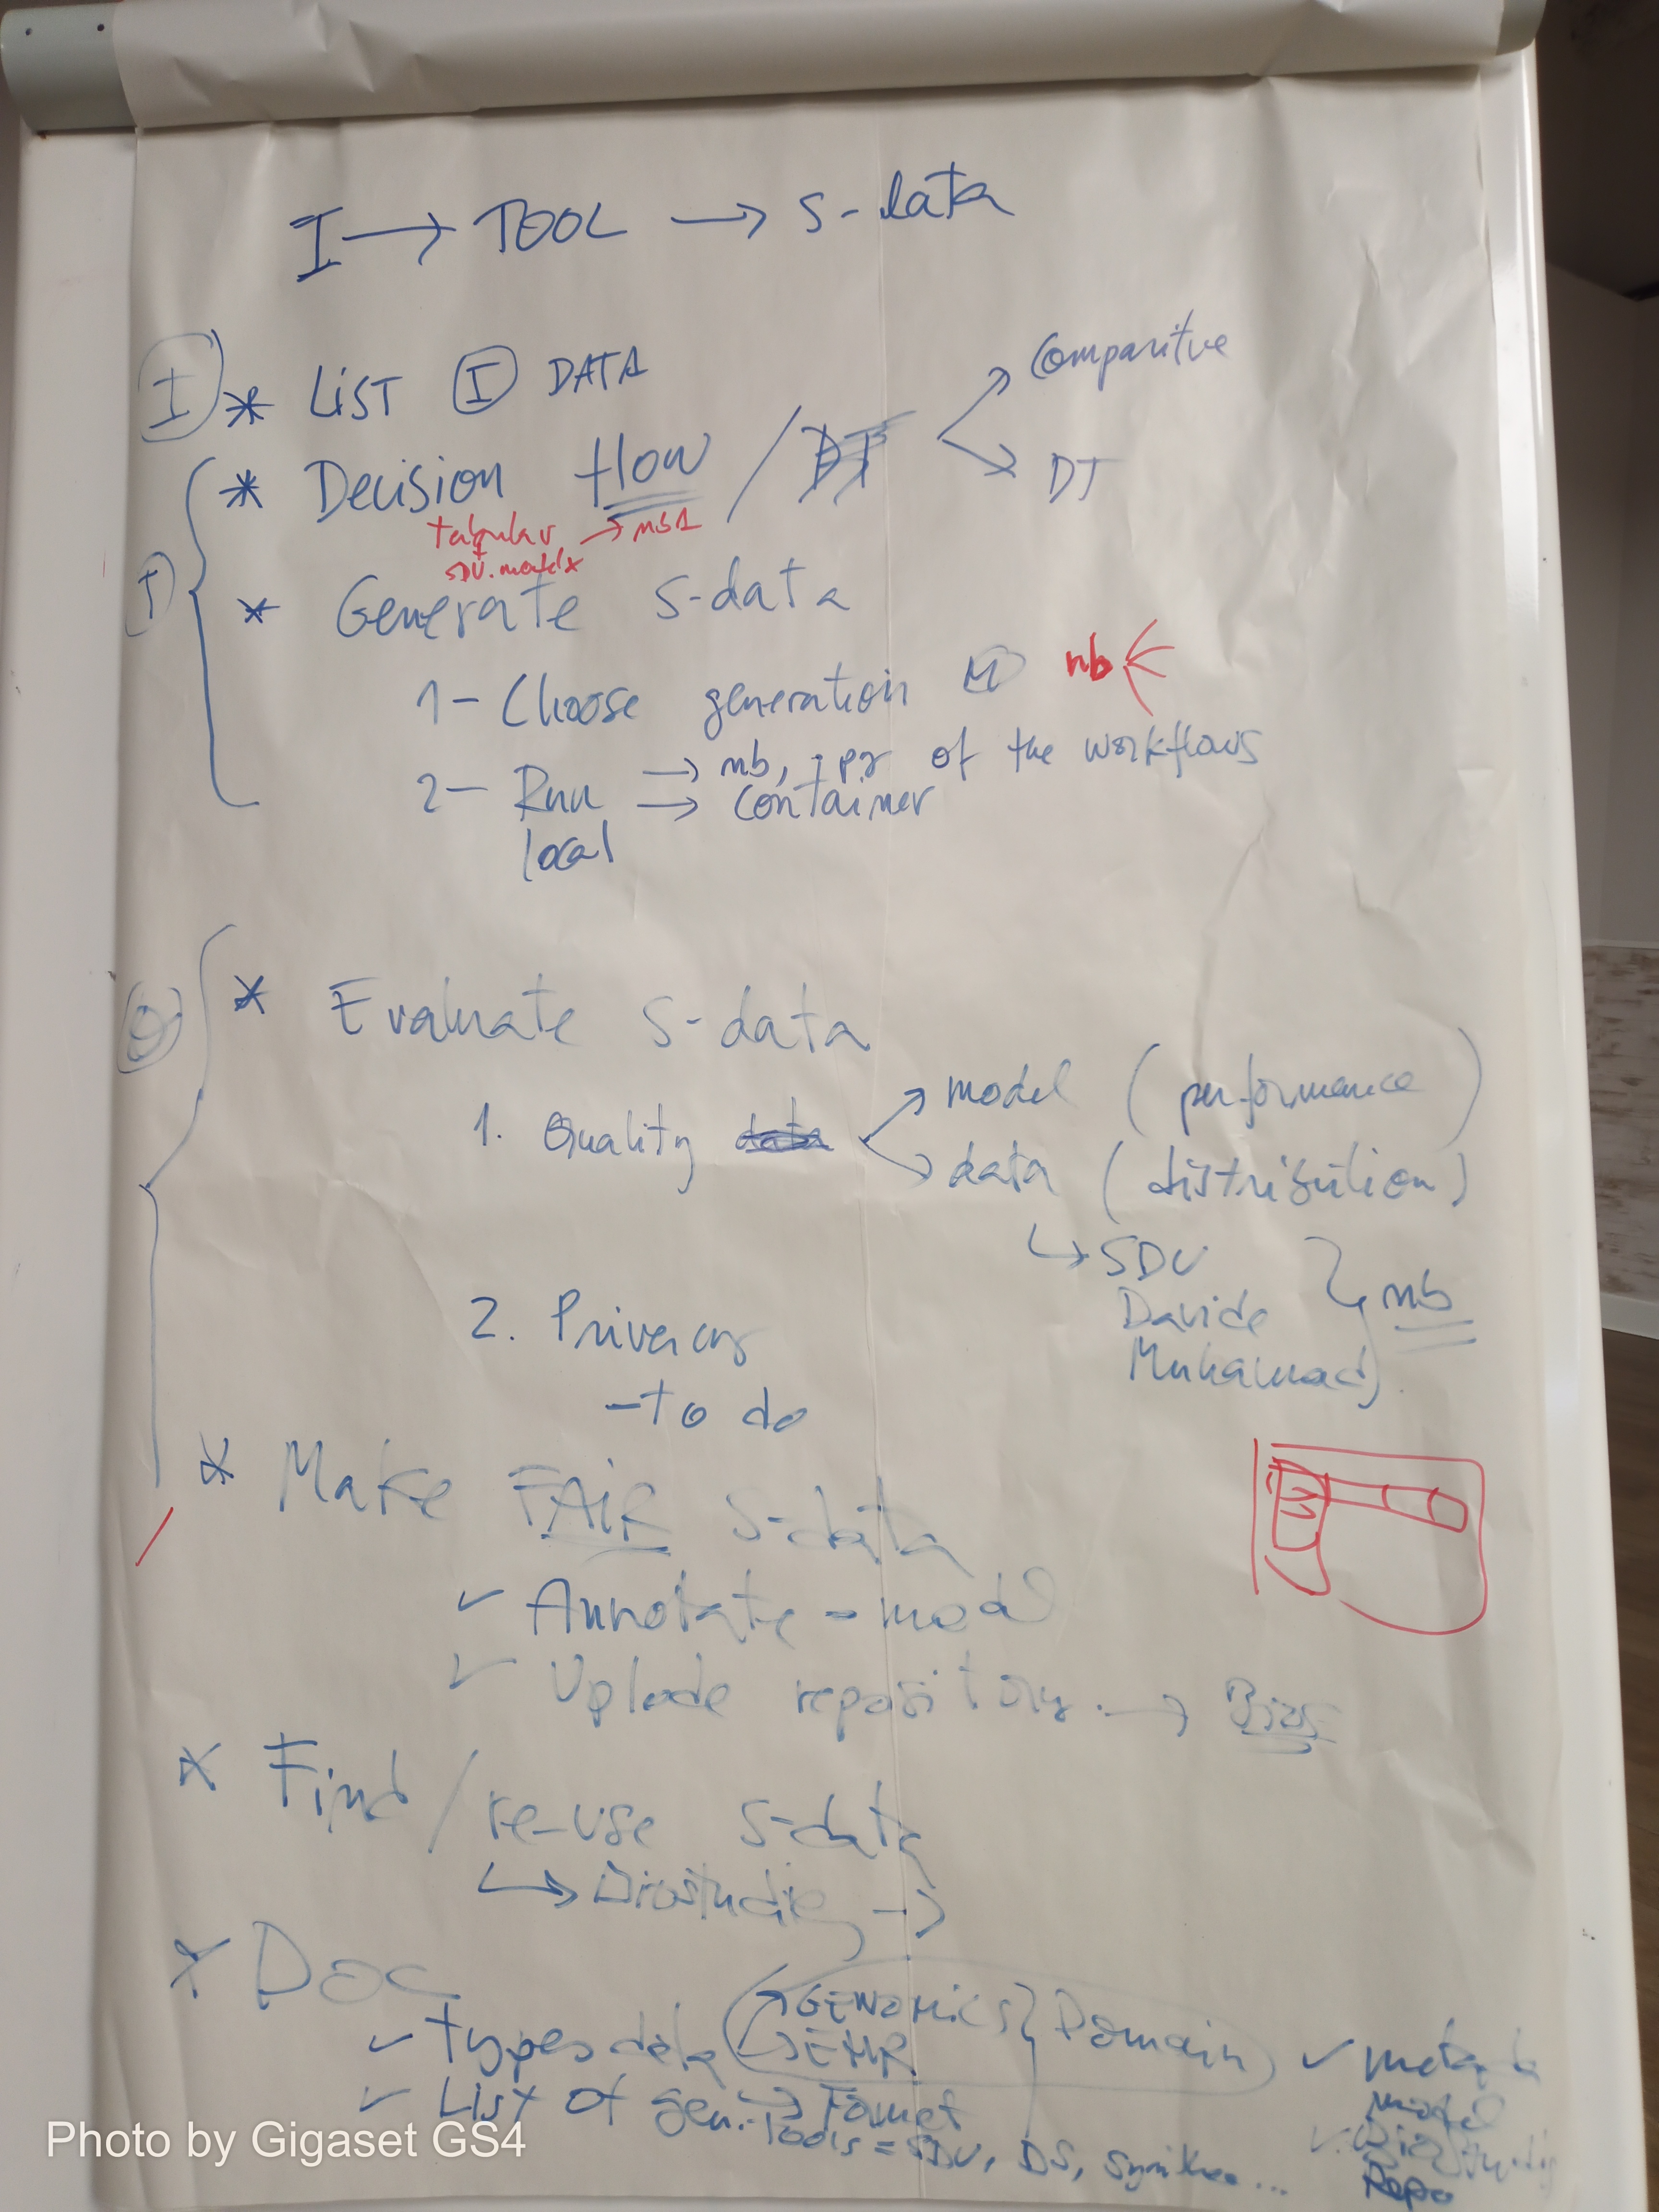 I → TOOL → s-data
I * LIST I DATA
* Decision flow / DT
→ Comparitve
→ DT
tabular → nb1
T
* Generate s-data
1- Choose generation M nb
2- Run → nb, .py of the workflows
→ container
local
O
* Evaluate s-data
1. Quality data → model (performance)
→ data (distribution)
↳ SDV
Davide
Muhammad } nb
2. Privacy
- to do
* Make FAIR s-data
✓ Annotate - mod
✓ Uplode repository →
* Find / re-use s-data
↳ Biostudies →
* Doc
✓ types data → GENOMICS } Domain
→ EHR
→ Format
✓ List of gen. tools = SDV, DS, Synthea ...
✓ meta
model
✓ Biostudies
Repo
Photo by Gigaset GS4